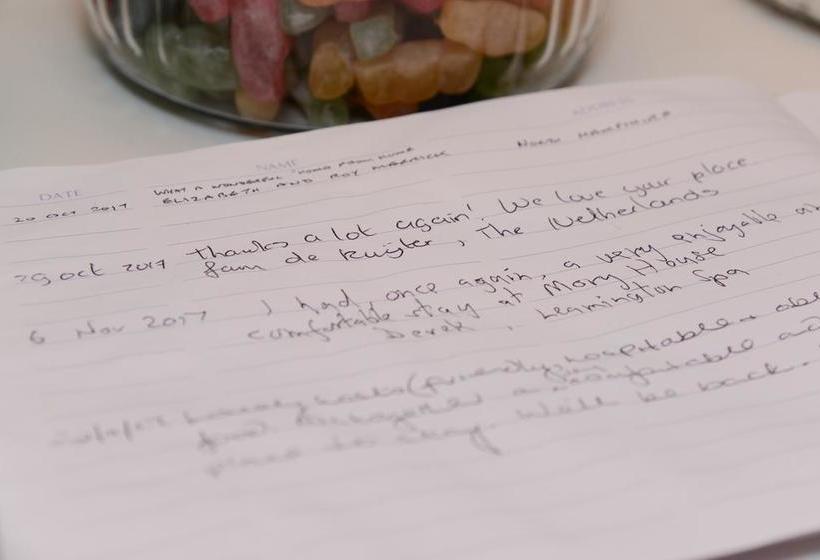 DATE NAME ADDRESS
20 OCT 2017 WHAT A WONDERFUL "HOME FROM HOME
ELIZABETH AND ROY MERRICK NORTH
29 oct 2017 thanks a lot again! We love your place
fam de Ruijter, The Netherlands
6 Nov 2017 I had, once again, a very enjoyable
comfortable stay at Mory House
Derek, Leamington Spa
hospitable
food comfortable
place to stay. We'll be back.